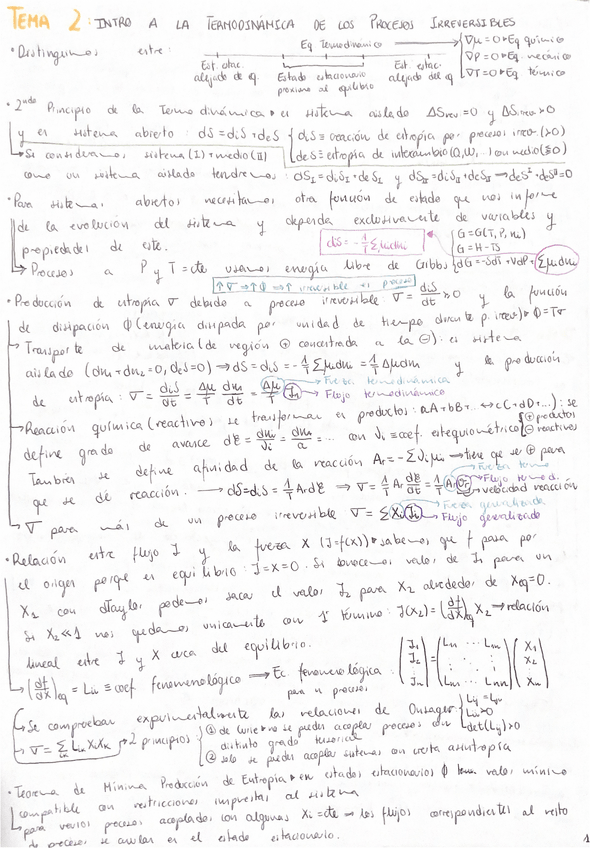 TEMA 2: INTRO A LA TERMODINÁMICA DE LOS PROCESOS IRREVERSIBLES
• Distinguimos entre:
Eq Termodinámico
∇μ=0 → Eq químico
∇P=0 → Eq. mecánico
∇T=0 → Eq térmico
Est. estac. alejado de eq.
Estado estacionario próximo al equilibrio
Est. estac. alejado del eq
• 2ndo Principio de la Termodinámica → en sistema aislado ΔSrev=0 y ΔSirrev>0
y en sistema abierto: dS=diS+deS
diS ≡ creación de entropía por procesos irrev. (>0)
deS ≡ entropía de intercambio (Q,W,...) con medio
→ Si consideramos sistema (I) + medio (II)
como un sistema aislado tendremos: dSI = diSI + deSI y dSII = diSII + deSII → deSI + deSII = 0
• Para sistemas abiertos necesitamos otra función de estado que nos informe
de la evolución del sistema y dependa exclusivamente de variables y
propiedades de este.
diS = -1/T Σμidni
G=G(T,P,ni)
G=H-TS
dG=-SdT+VdP+Σμidni
→ Procesos a P y T=cte usamos energía libre de Gibbs
↑∇ → ↑Φ → ↑ irreversible es proceso
• Producción de entropía σ debido a proceso irreversible: σ = diS/dt > 0 y la función
de disipación Φ (energía disipada por unidad de tiempo durante p. irrev) → Φ=Tσ
→ Transporte de materia (de región ⊕ concentrada a la ⊖): en sistema
aislado (dn1+dn2=0, deS=0) → dS=diS=-1/T Σμidni = 1/T Δμdni y la producción
de entropía: σ = diS/dt = Δμ/T dni/dt = Δμ/T Ji
Fuerza termodinámica
Flujo termodinámico
→ Reacción química (reactivos se transforman en productos: aA+bB+... ↔ cC+dD+...): se
define grado de avance dξ = dni/νi = dna/a = ... con νi ≡ coef. estequiométrico
⊕ productos
⊖ reactivos
También se define afinidad de la reacción Ar=-Σνiμi → tiene que ser ⊕ para
que se dé reacción. → dS=diS=1/T Ardξ → σ = 1/T Ar dξ/dt = 1/T Ar vr
Fuerza termo
Flujo termod.
velocidad reacción
→ σ para más de un proceso irreversible σ = ΣXiJi
Fuerza generalizada
Flujo generalizado
• Relación entre flujo J y la fuerza X (J=f(x)) → sabemos que f pasa por
el origen porque en equilibrio: J=X=0. Si conocemos valor de J1 para un
X1 con dTaylor podemos sacar el valor J2 para X2 alrededor de Xeq=0.
Si X2≪1 nos quedamos unicamente con 1er término: J(X2) = (df/dX)eq X2 → relación
lineal entre J y X cerca del equilibrio.
→ (df/dX)eq = Lii ≡ coef fenomenológico → Ec. fenomenológica: para n procesos
(J1 J2 ⋮ Jn) = (L11 ... L1n ⋮ ⋮ Ln1 ... Lnn) (X1 X2 ⋮ Xn)
→ Se comprueban experimentalmente las relaciones de Onsager
Lij = Lji
Lii>0
det(Lij)>0
→ σ = Σ Lik XiXk → 2 principios
① de Curie → no se pueden acoplar procesos con distinto grado tensorial
② solo se pueden acoplar sistemas con cierta asimetría
• Teorema de Mínima Producción de Entropía → en estados estacionarios Φ toma valor mínimo
compatible con restricciones impuestas al sistema
→ para varios procesos acoplados con algunas Xi=cte → los flujos correspondientes al resto
de procesos se anulan en el estado estacionario.
1